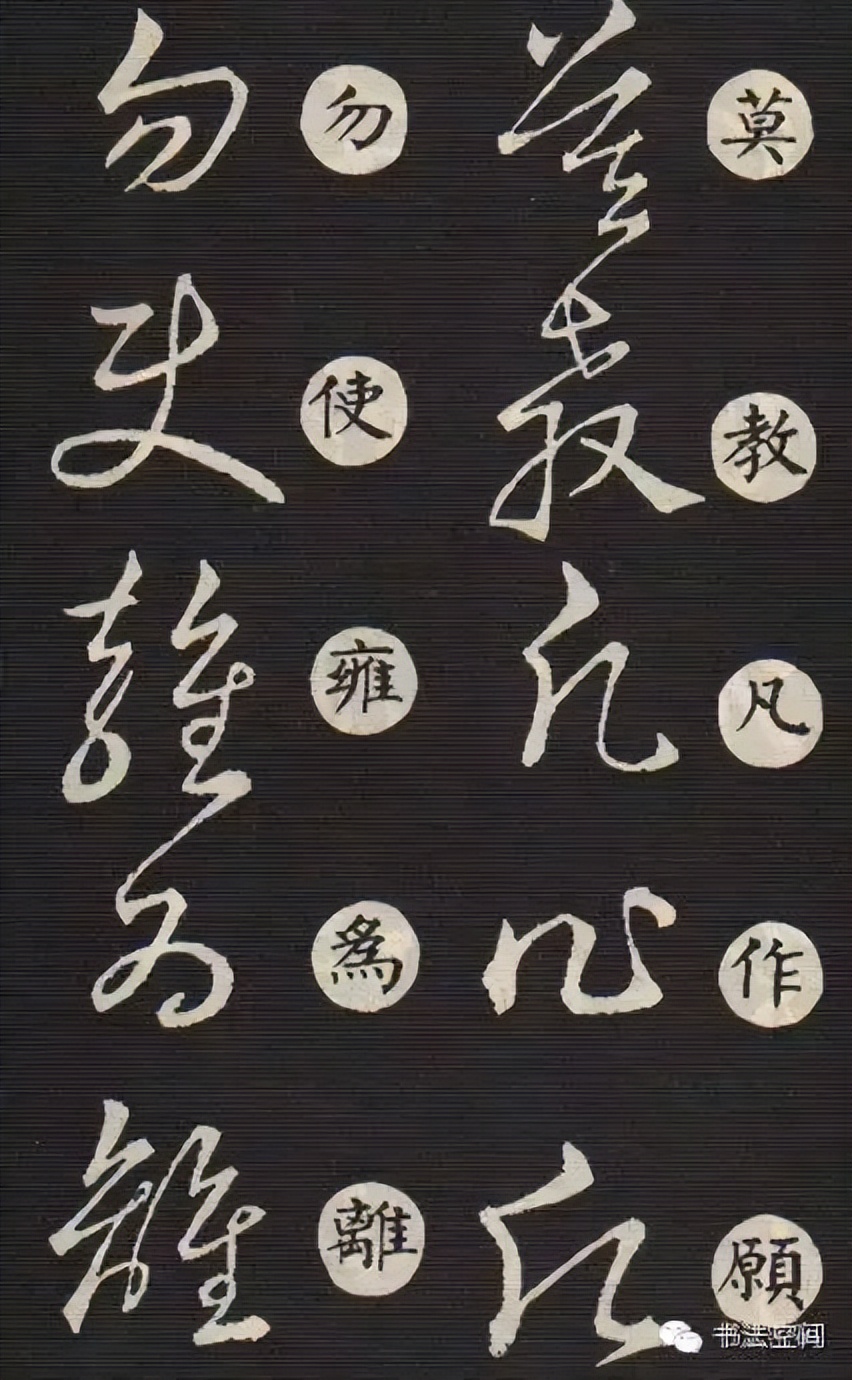 莫教凡作願
勿使雍為離
书法空间